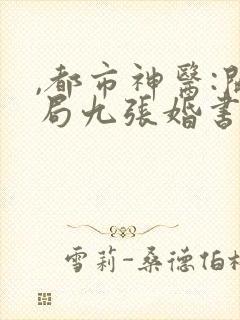 ,都市神醫:開
局九張婚書
雪莉-桑德伯格